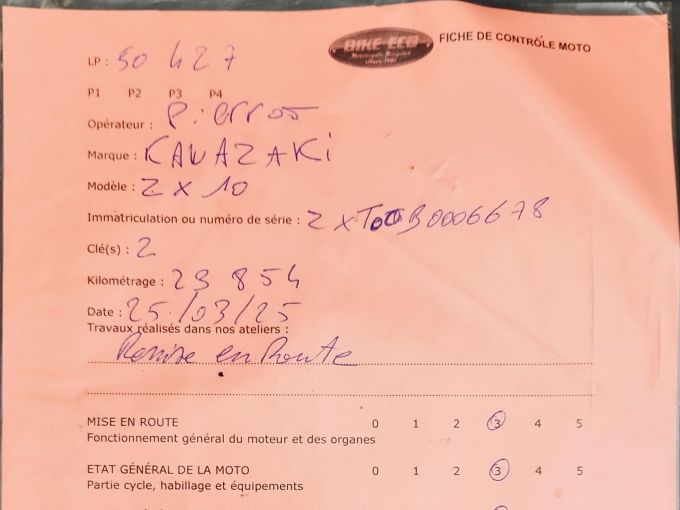 BIKE ECO
FICHE DE CONTRÔLE MOTO
LP : 50 427
P1 P2 P3 P4
Opérateur : Pierros
Marque : KAWAZAKi
Modèle : ZX 10
Immatriculation ou numéro de série : ZXT00B0006678
Clé(s) : 2
Kilométrage : 23 854
Date : 25/03/25
Travaux réalisés dans nos ateliers :
Remise en Route
MISE EN ROUTE 0 1 2 3 4 5
Fonctionnement général du moteur et des organes
ETAT GÉNÉRAL DE LA MOTO 0 1 2 3 4 5
Partie cycle, habillage et équipements